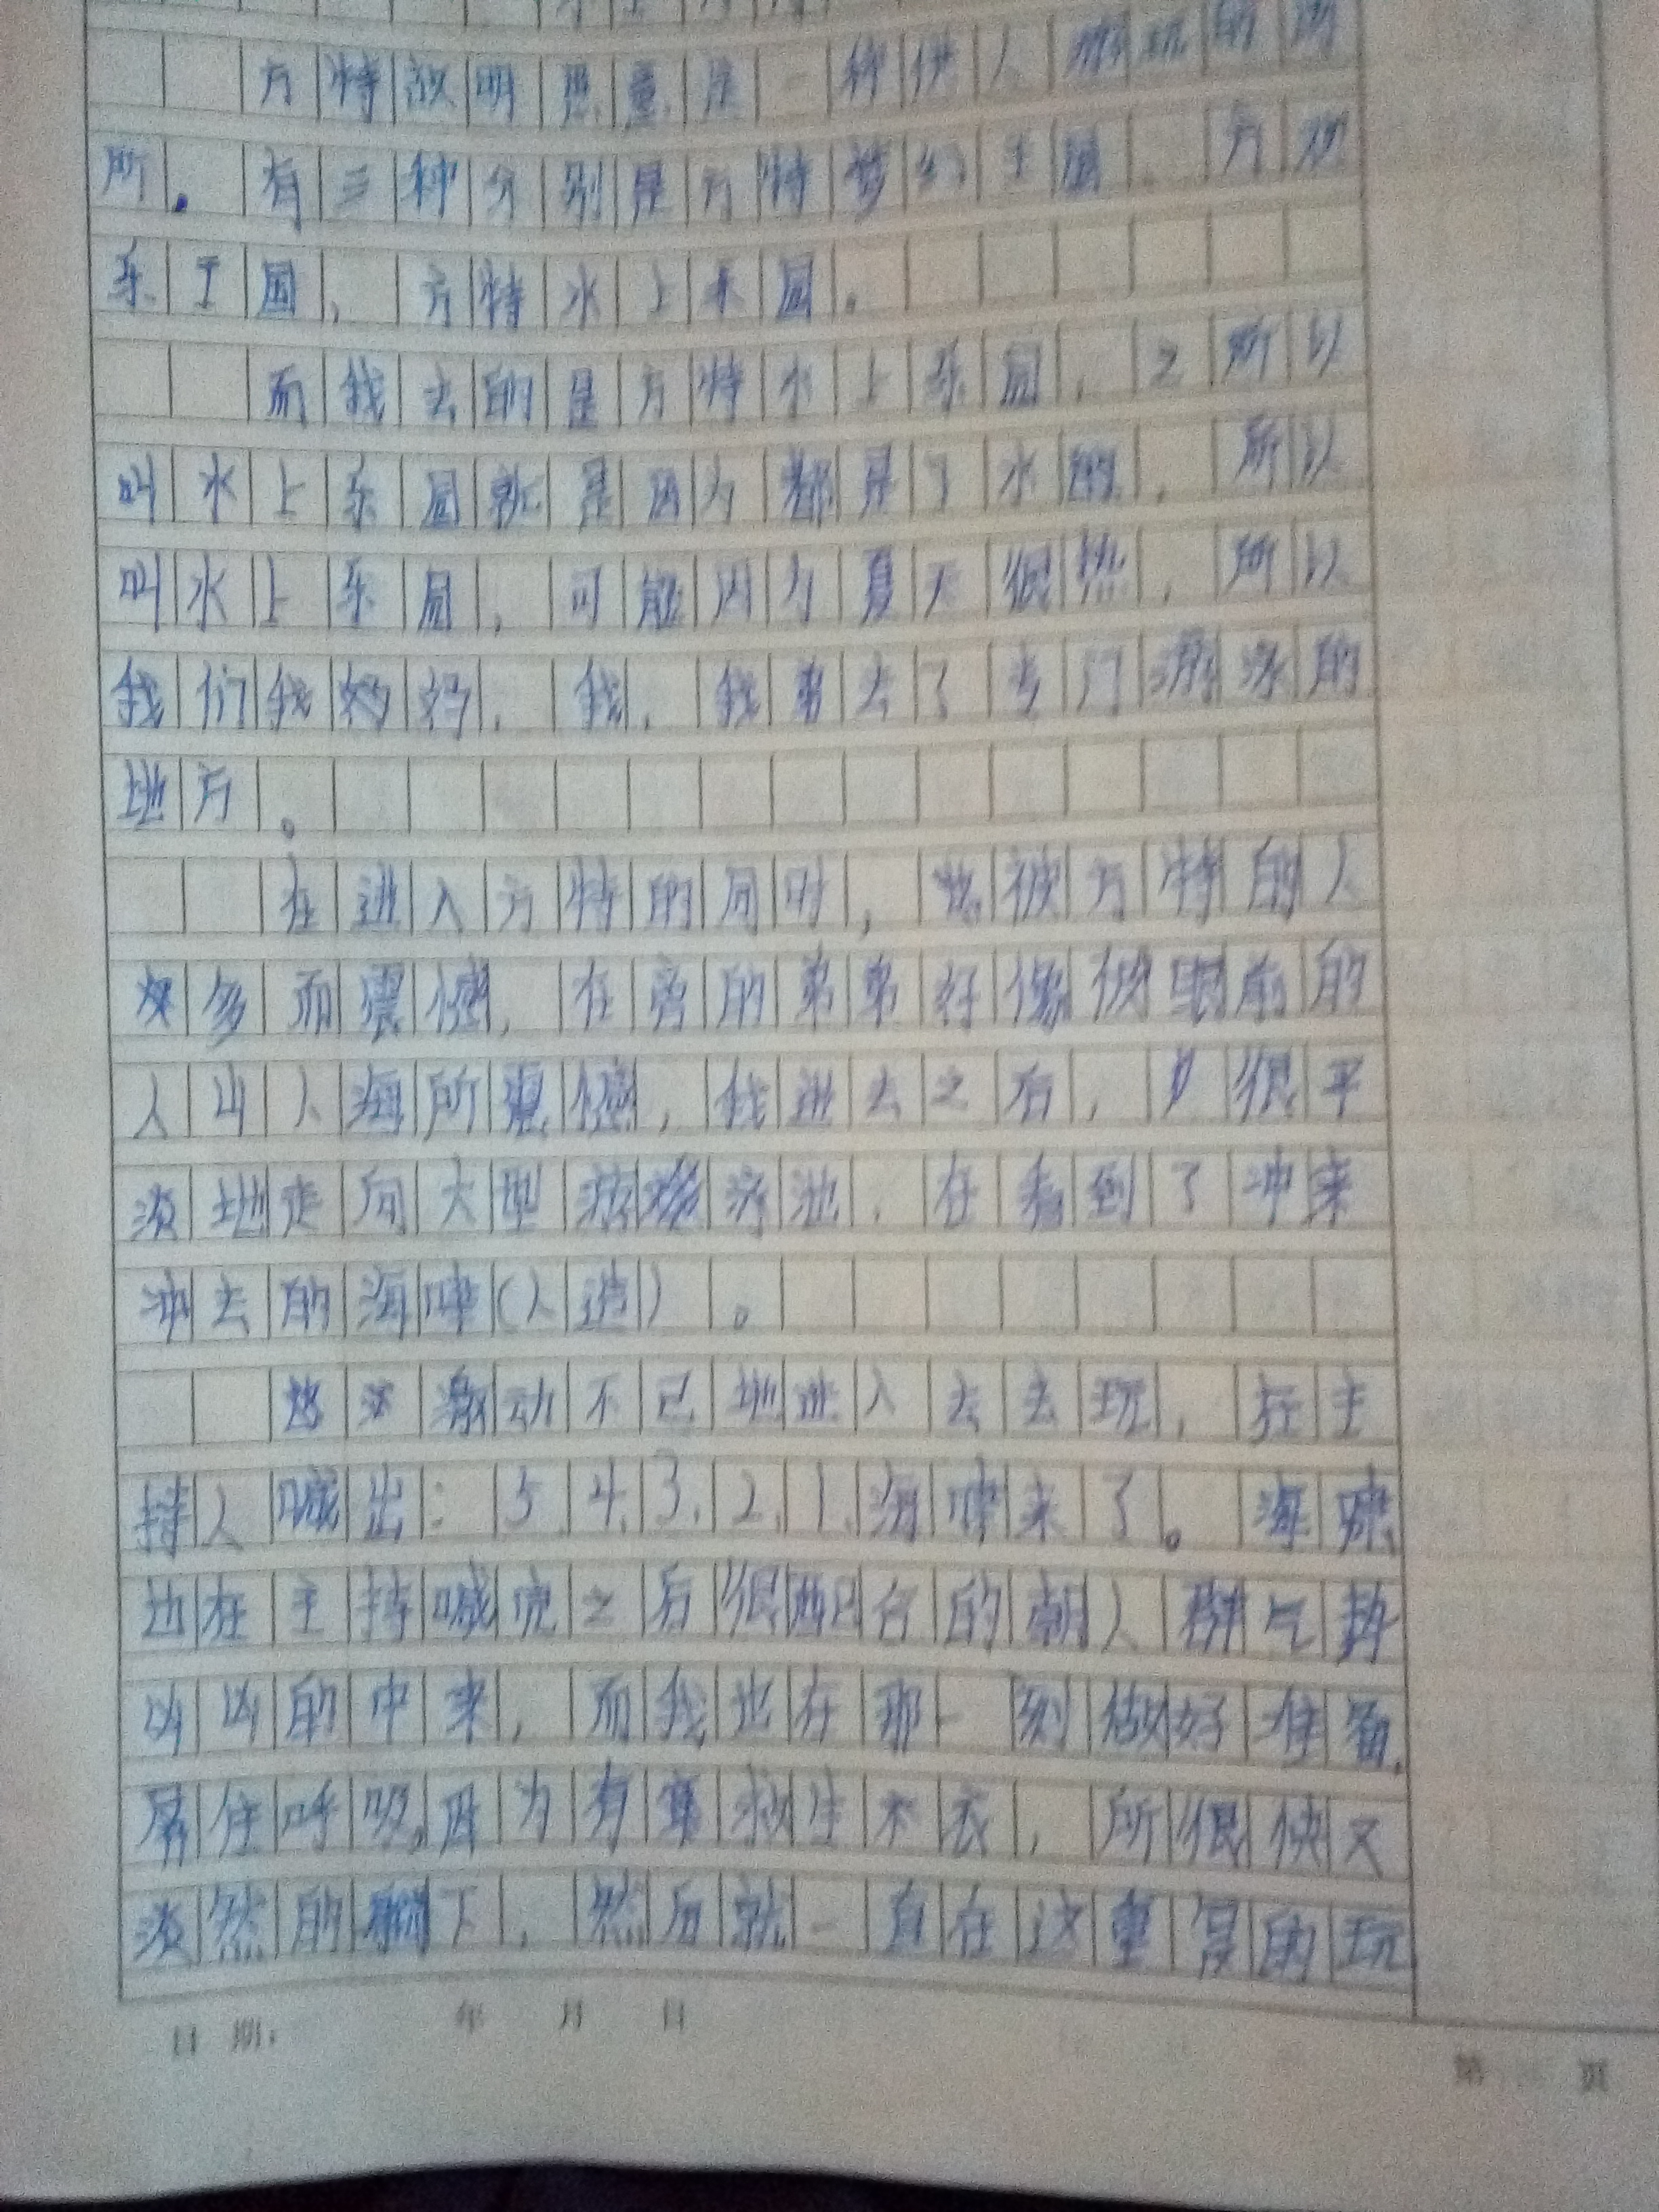 方特故明思意是一种供人游玩的场
所。有三种分别是方特梦幻王国、方欢
乐王国，方特水上乐园。
而我去的是方特水上乐园，之所以
叫水上乐园就是因为都是了水的，所以
叫水上乐园，可能因为夏天很热，所以
我们我妈妈，我，我弟去了专门游泳的
地方。
在进入方特的同时，就被方特的人
数多而震憾，在旁的弟弟好像被眼前的
人山人海所震憾，我进去之后，很平
淡地走向大型游泳池，在看到了冲来
冲去的海啸(人造)。
激动不已地进入去去玩，在主
持人喊出：5、4、3、2、1、海啸来了。海啸
也在主持喊完之后很配合的朝人群气势
凶凶的冲来，而我也在那一刻做好准备，
屏住呼吸，因为有救生衣，所很快又
淡然的躺下，然后就一直在这重复的玩
日期： 年 月 日
第 页